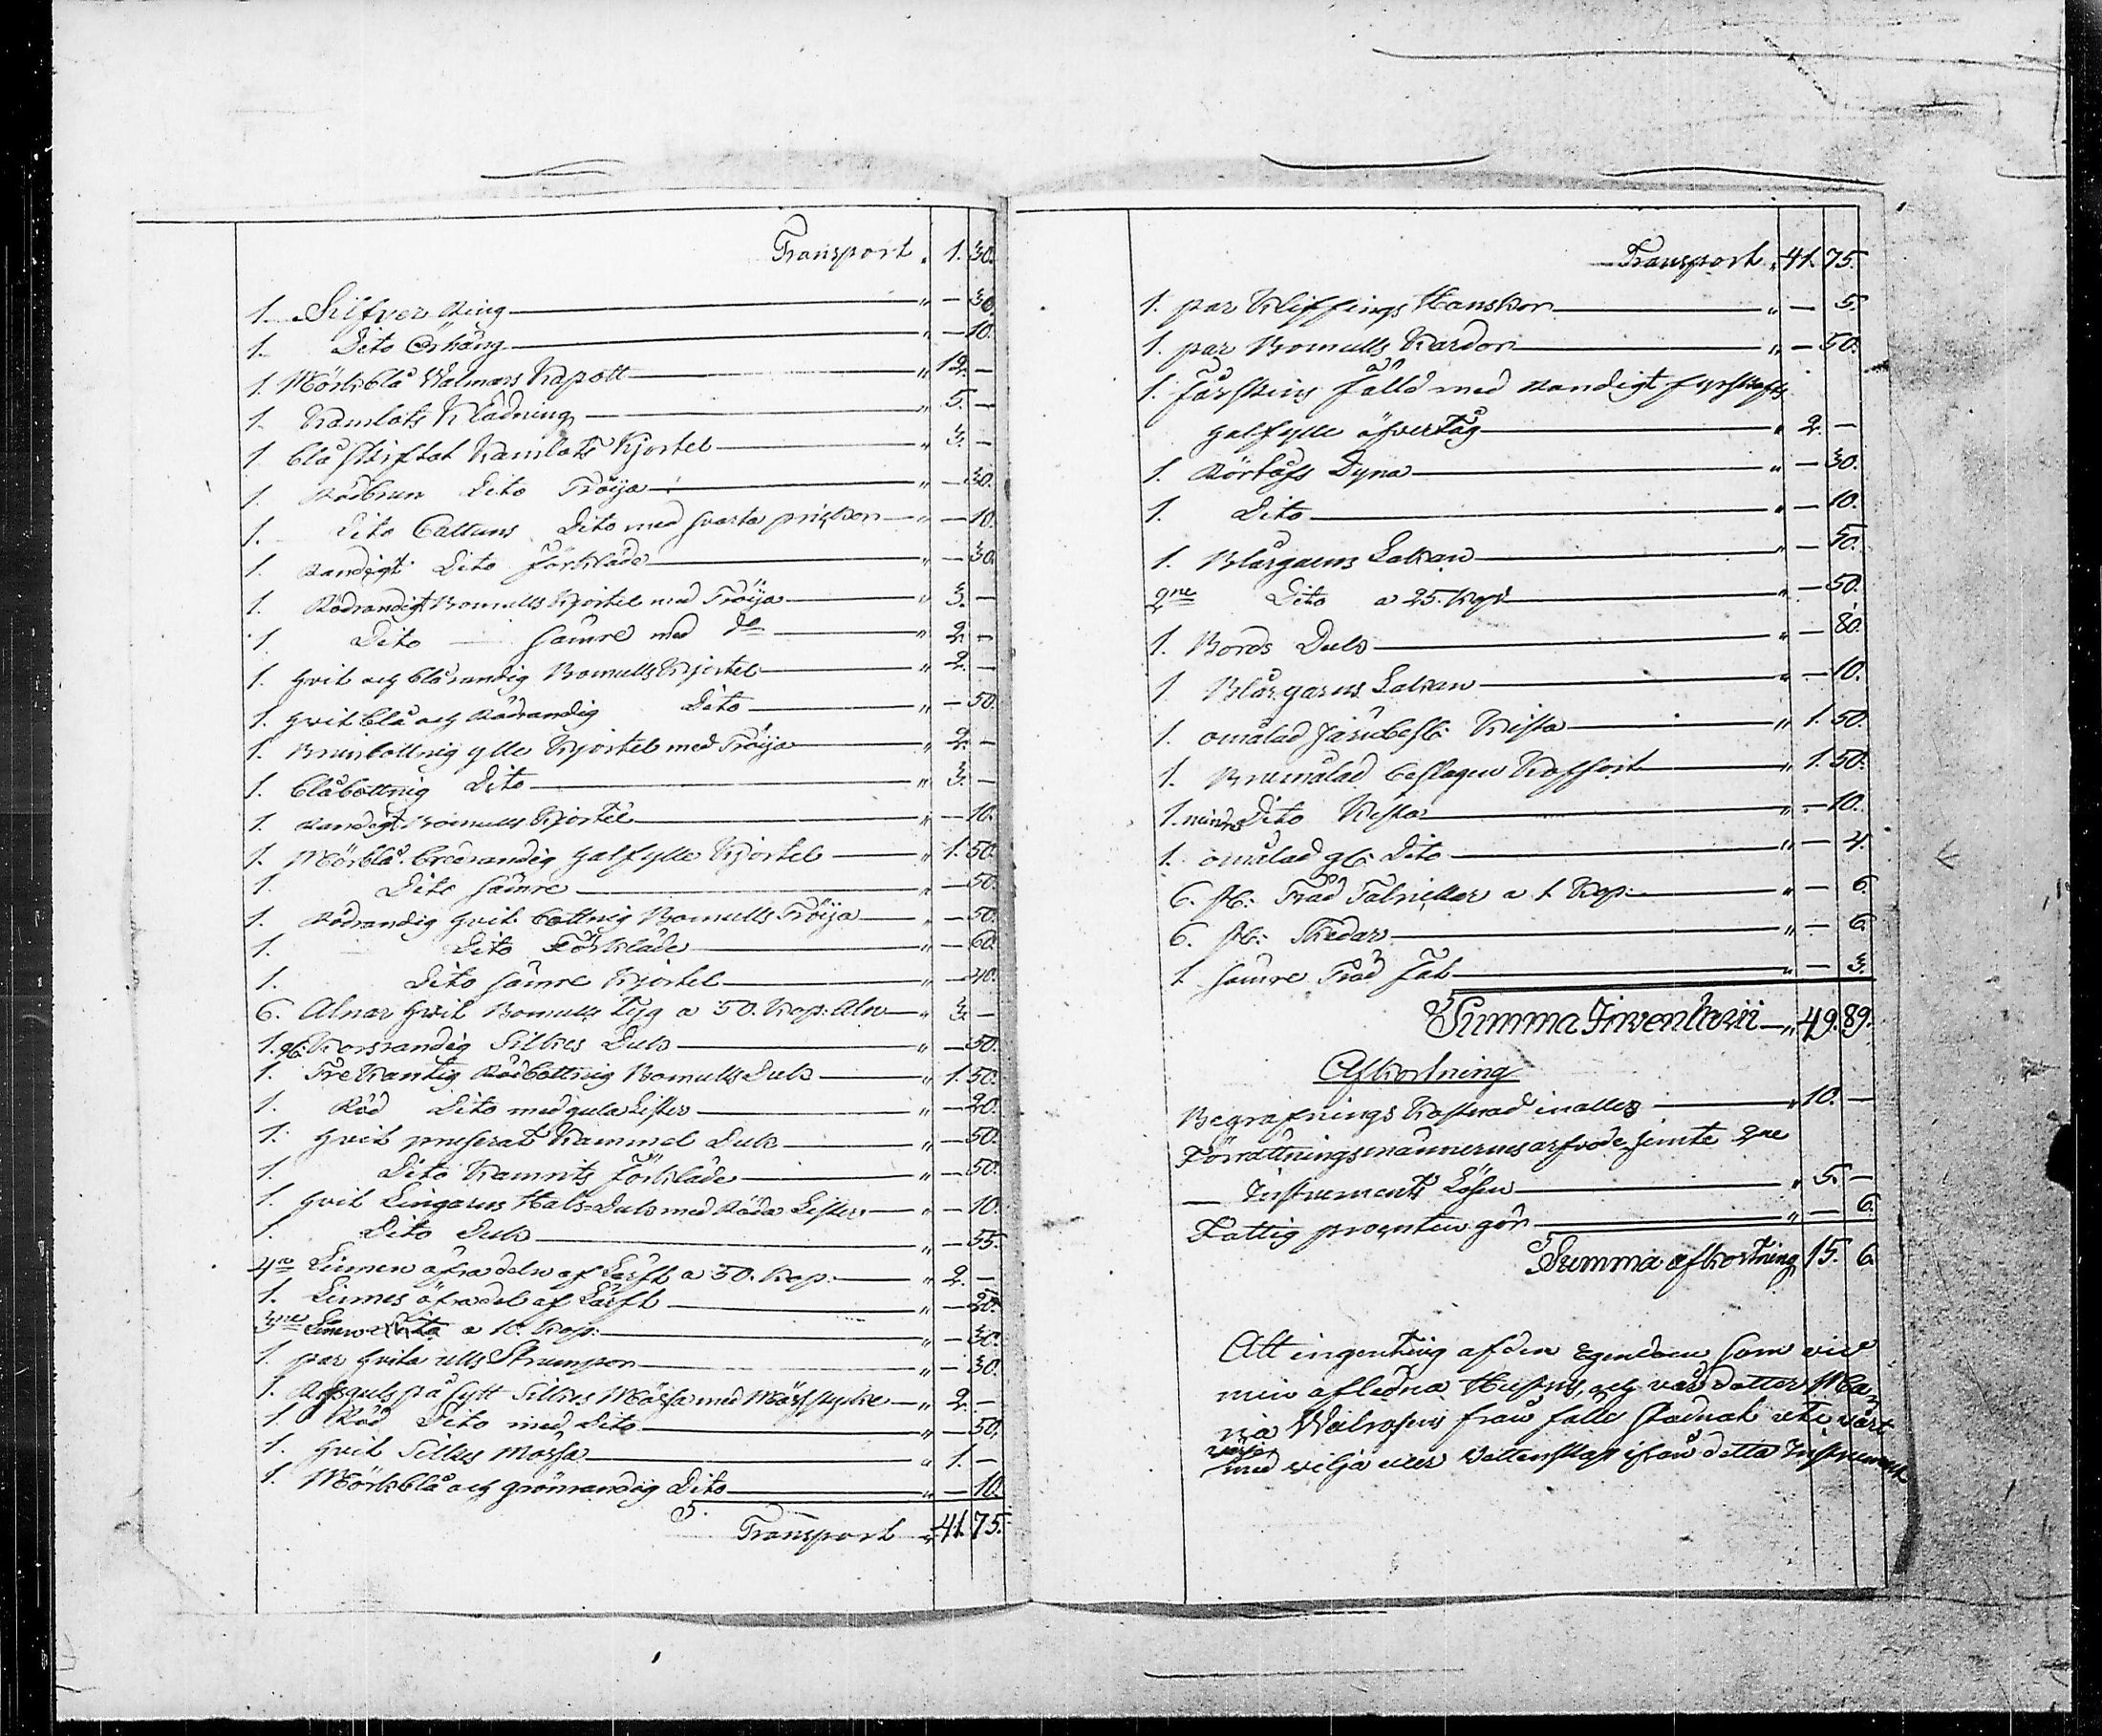 Transport „ 1. 30.
1. Silfver Ring „ — 30.
1. Dito Örhäng „ — 10.
1. Mörkblå Walmars Kapott „ 12. —
1. Kamlots Klädning „ 5. —
1. blå skiftat Kamlots Kjortel „ 3. —
1. Rödbrun Dito Tröija „ — 30.
1. Dito Cattuns Dito med svarta prickor „ — 10.
1. Randigt Dito Förkläde „ — 30.
1. Rödrandigt Bomulls Kjortel med Tröija „ 3. —
1. Dito — sämre med do „ 2. —
1. hvit och blårandig Bomulls Kjortel „ 2. —
1. hvit blå och Rödrandig Dito „ — 50.
1. Brunbottnig ylle Kjortel med Tröija „ 2. —
1. blåbottnig Dito „ 3. —
1. Randigt Bomulls Kjortel „ — 10.
1. Mörblå bredrandig halfylle Kjortel „ 1. 50.
1. Dito sämre „ — 50.
1. Rödrandig hvit bottnig Bomulls Tröija „ — 50.
1. Dito Förkläde „ — 60.
1. Dito sämre Kjortel „ — 40.
6. Alnar hvit Bomulls Tyg a 50. Kop: Aln „ 3. —
1. gl: Korsrandig Silkes Duk „ — 50.
1. Trekantig Rödbottnig Bomulls Duk „ 1. 50.
1. Röd Dito med gula Lister „ — 20.
1. hvit Kammel Duk „ — 50.
1. Dito Kamrits Förkläde „ — 50.
1. hvit Lingarns Hals-Duk med Röda Lister „ — 10.
1. Dito Duk „ — 55.
4ra Linnen öfradelar af Lärft a 50. Kop: „ 2. —
1. Linnes öfradel af Lärft „ — 20.
3ne Linnen Dito a 10. Kop: „ — 30.
1. par hvita ulls Strumpor „ — 30.
1. på sytt Silkes Mössa med Mösstycke „ 2. —
1. Röd Dito med Dito „ — 50.
1. hvit Silkes Mössa „ 1. —
1. Mörkblå och grönrandig Dito „ — 10.
Transport „ 41. 75.
Transport „ 41. 75.
1. par Kliffings Hanskor „ — 5.
1. par Bomulls Kardor „ — 50.
1. Fårskins Fäll med Randigt fyrskafts
halfylle öfvertåg „ 2. —
1. Dyna „ — 30.
1. Dito „ — 10.
1. Blårgarns Lakan „ — 50.
2ne Dito a 25. Kop: „ — 50.
1. Bords Duk „ — 80.
1. Blårgarns Lakan „ — 10.
1. omålad järnbesl: Kista „ 1. 50.
1. Brunmålad beslagen Koffort „ 1. 50.
1. mindre Dito Kista „ — 10.
1. omålad gl: Dito „ — 4.
6. st: Träd Talrickor a 1 Kop: „ — 6.
6. st: Skedar „ — 6.
1. sämre Träd Fat „ — 3.
Summa Inventarii „ 49. 89.
Afkortning
Begrafnings Kostnad inalles „ 10. —
Förrättningsmännernes arfvode jemte 2ne
— Instruments Lösen „ 5. —
Fattig procenten gör „ — 6.
Summa afkortning 15. 6.
Att ingenting af den Egendom som vid
min aflidna Hustrus, och vår dotter Ma-
ria Walrosens frånfälle stadnat uti vårt
värjo
med vilja eller Vettenskap ifrån detta Instrument